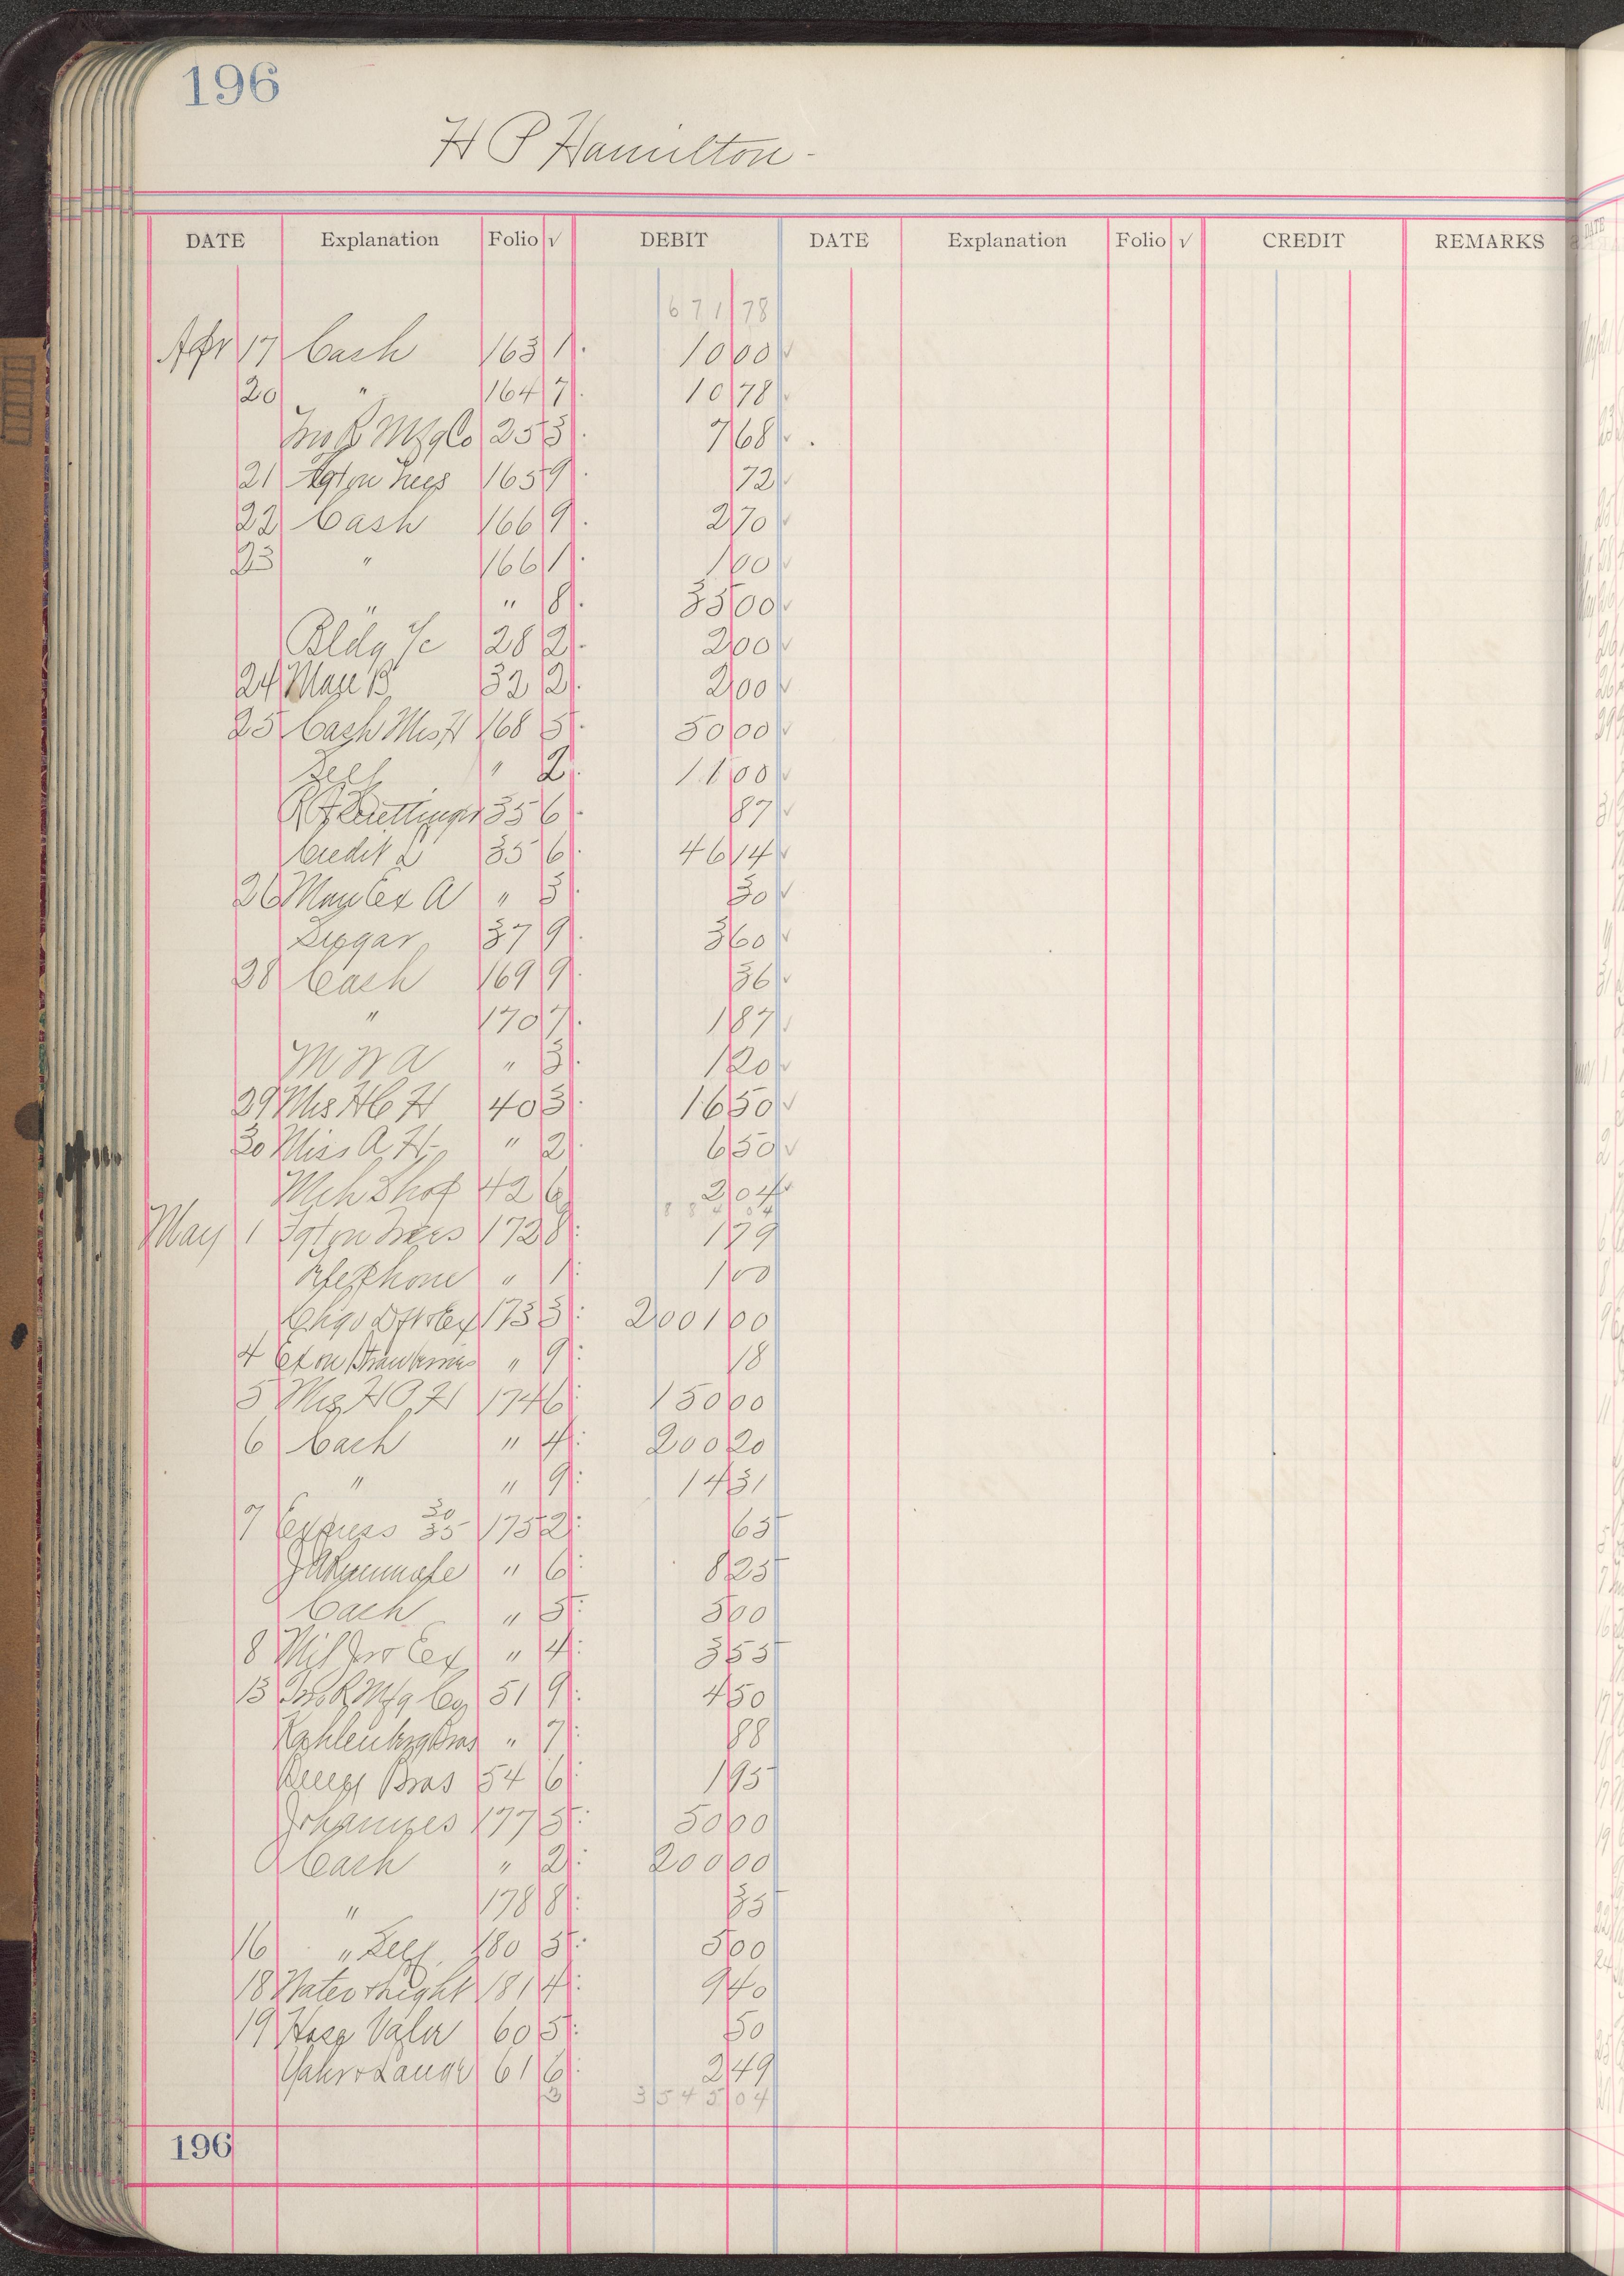 196
H P Hamilton -
DATE Explanation Folio √ DEBIT DATE Explanation Folio √ CREDIT REMARKS
671 78
Apr 17 Cash 163 1 10 00
20 " 164 7 10 78
Mfg Co 25 3 7 68
21 165 9 72
22 Cash 166 9 2 70
23 " 166 1 1 00
" " 8 35 00
Bldg a/c 28 2 2 00
24 32 2 2 00
25 Cash Mrs H 168 5 50 00
Self " 2 11 00
35 6 87
Credit L 35 6 46 14
26 Ex A " 3 30
37 9 3 60
28 Cash 169 9 36
" 170 7 1 87
M W A " 3 1 20
29 Mrs H C H 40 3 16 50
30 Miss A H " 2 6 50
Mch Shop 42 6 2 04
884 04
May 1 172 8 1 79
Telephone " 1 1 00
173 3 2001 00
4 Ex on Strawberries " 9 18
5 Mrs H P H 174 6 150 00
6 Cash " 4 200 20
" " 9 14 31
7 Express 30 35 175 2 65
" 6 8 25
Cash " 5 5 00
8 Ex " 4 3 55
13 R Mfg Co 51 9 4 50
Kahlenberg Bros " 7 88
Bros 54 6 1 95
Johannes 177 5 50 00
Cash " 2 200 00
" 178 8 35
16 " Self 180 5 5 00
18 Water & Light 181 4 9 40
19 Hose Valve 60 5 50
Yahr & Lange 61 6 2 49
3 3545 04
196